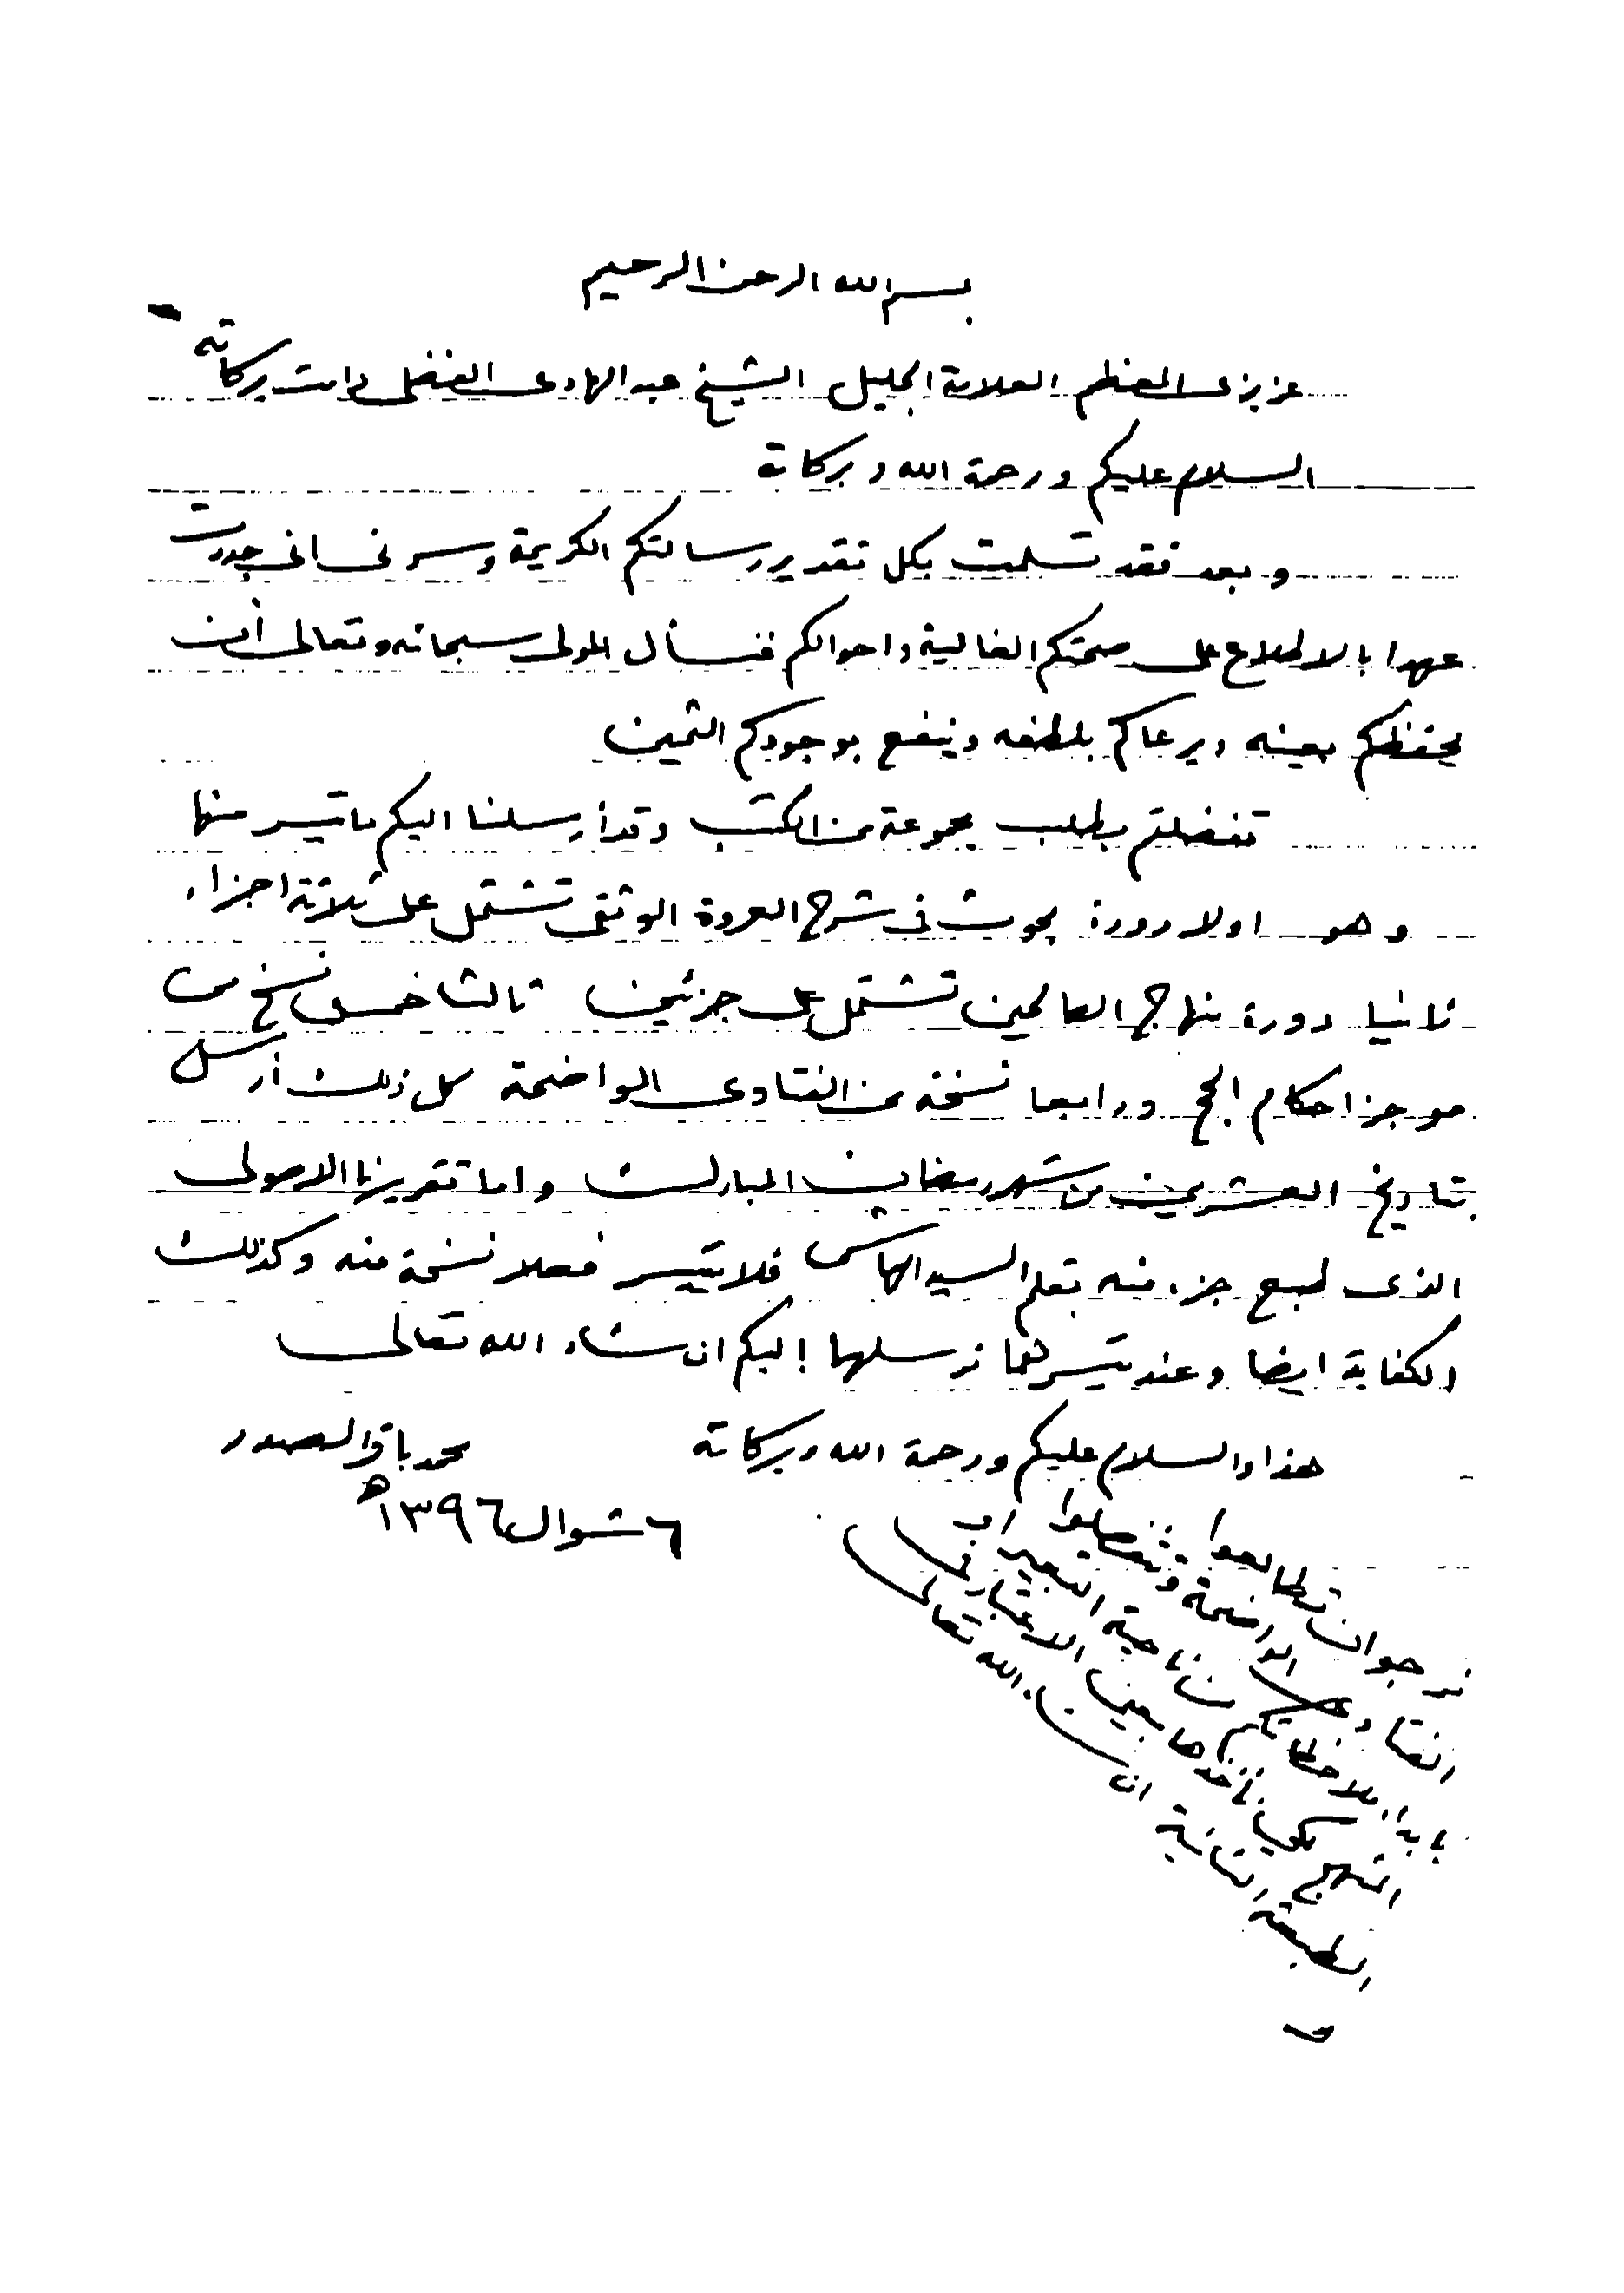 بسم الله الرحمن الرحيم
عزيزي المعظم العلامة الجليل الشيخ عبد الهادي الفضلي دامت بركاته
السلام عليكم ورحمة الله وبركاته
وبعد فقد تسلمت بكل تقدير رسالتكم الكريمة وسرني اني جددت
عهدا بالاطلاع على صحتكم الغالية واحوالكم فنسأل المولى سبحانه وتعالى أن
يحفظكم بعينه ويرعاكم بلطفه وينفع بوجودكم الثمين
تفضلتم بطلب مجموعة من الكتب وقد أرسلنا اليكم ما تيسر منها
وهو اولا دورة بحوث في شرح العروة الوثقى تشتمل على ثلاثة اجزاء
ثانيا دورة منهاج الصالحين تشتمل على جزئين ثالثا خمس نسخ من
موجز احكام الحج ورابعا نسخة من الفتاوى الواضحة كل ذلك أرسل
بتاريخ العشرين من شهر رمضان المبارك واما تقريرنا الاصولي
الذي طبع جزء منه بقلم السيد الهاشمي فلا تتيسر فعلا نسخة منه وكذلك
الكفاية ايضا وعند تيسرهما نرسلهما إليكم ان شاء الله تعالى
هذا والسلام عليكم ورحمة الله وبركاته
محمد باقر الصدر
٦ شوال ١٣٩٦ هـ
نرجو ان تطالعوا
الفتاوى الواضحة وتتفضلوا
بابداء ملاحظاتكم من ناحية التعبير او
المنهج لكي نأخذها بعين الاعتبار في
الطبعة الثانية ان شاء الله تعالى